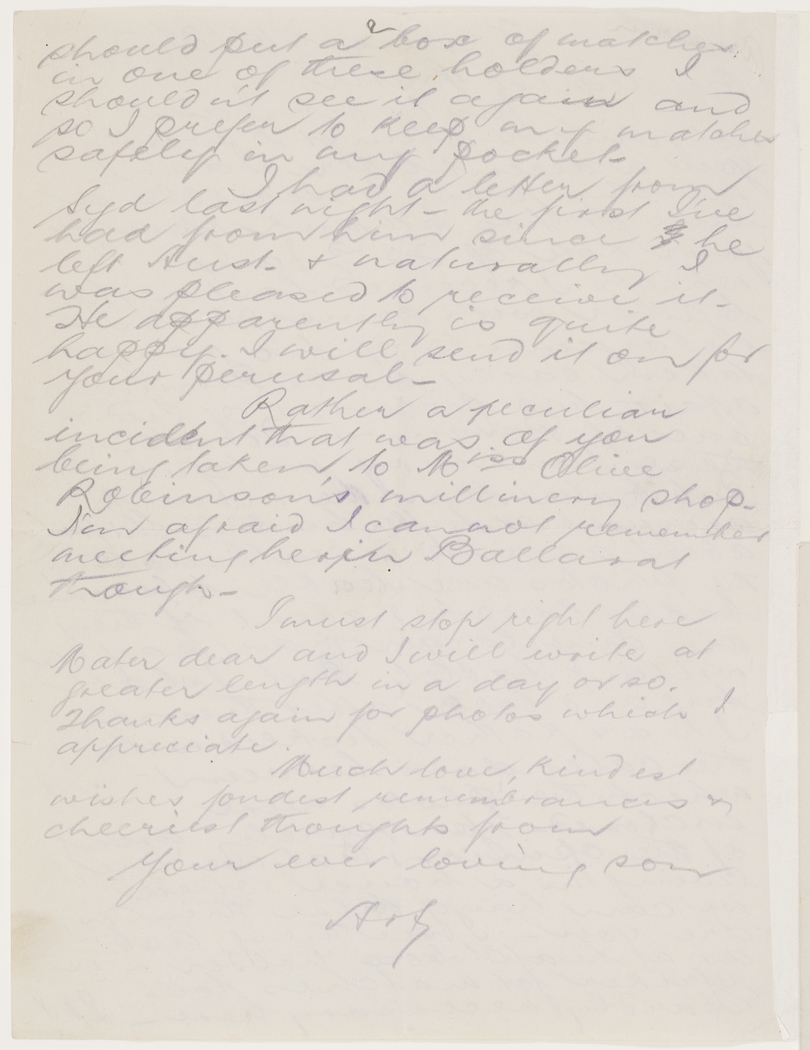 2
should put a box of matches
in one of these holders I
shouldn't see it again and
so I prefer to keep my matches
safely in my pocket -
I had a letter from
Syd last night - the first I've
had from him since he
left Aust. & naturally I
was pleased to receive it -
He apparently is quite
happy. I will send it on for
your perusal -
Rather a peculiar
incident that was of you
being taken to Miss Olive
Robinson's millinery shop -
I'm afraid I cannot remember
meeting her in Ballarat
though -
I must stop right here
Mater dear and I will write at
greater length in a day or so.
Thanks again for photos which I
appreciate.
Much love, kindest
wishes fondest remembrances &
cheeriest thoughts from
Your ever loving son
Art